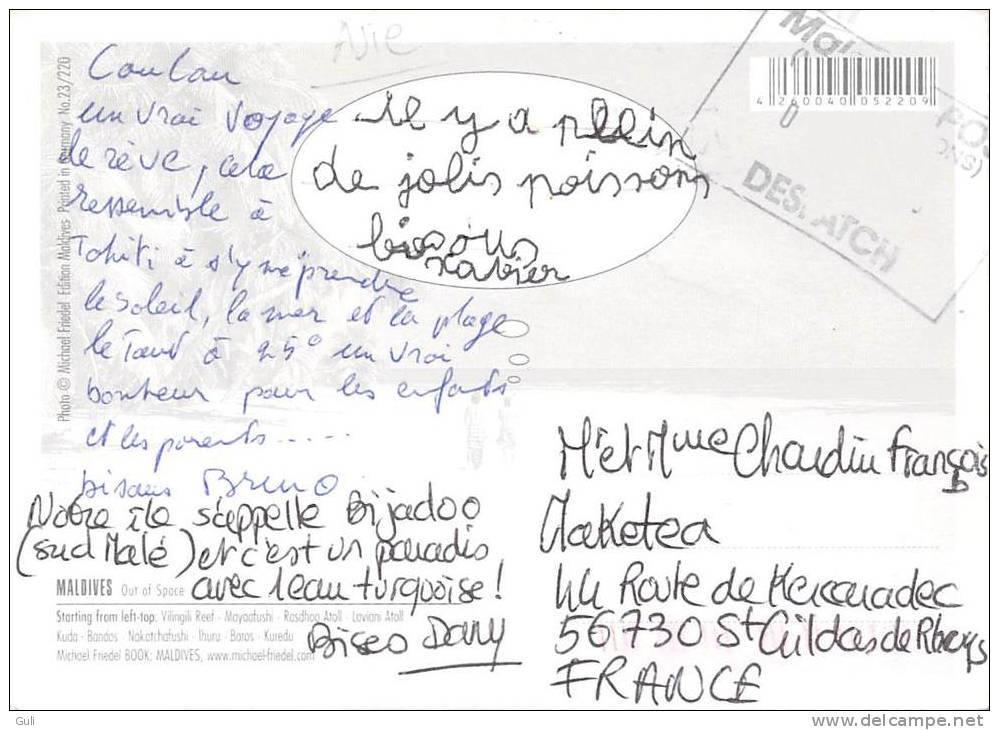 Nie
Coucou
un vrai voyage
de rêve, cela
ressemble à
Tahiti à s'y méprendre
le soleil, la mer et la plage
le tout à 25° un vrai
bonheur pour les enfants
et les parents.....
bisous Bruno
il y a plein
de jolis poissons
bisous
xavier
Notre île s'appelle Bijadoo
(sud Malé) et c'est un paradis
avec l'eau turquoise!
Biseo Dany
Photo © Michael Friedel Edition Maldives Printed in Germany No.23/220
4 260040 052209
DESPATCH
Mr et Mme Chaudin François
Maketea
44 Route de Kercaradec
56730 St Gildas de Rhuys
FRANCE
MALDIVES Out of Space
Starting from left-top: Vilingili Reef - Mayaafushi - Rasdhoo Atoll - Laviani Atoll
Kuda - Bandos - Nakatchafushi - Ihuru - Baros - Kuredu
Michael Friedel BOOK: MALDIVES, www.michael-friedel.com
Guli
delcampe.net